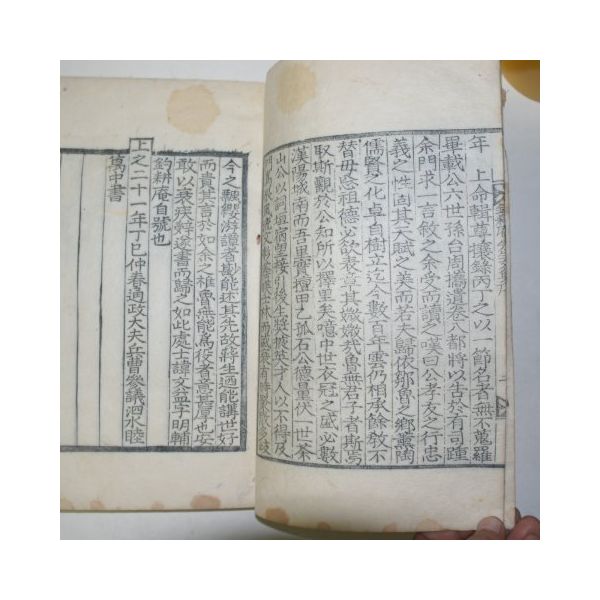 年 上命輯尊攘錄丙丁之以一節名者無不蒐羅
畢載公六世孫台周搢遺卷入都將以告於有司踵
余門求一言敏之余受而讀之嘆曰公孝友之行忠
義之性固其天賦之美而若夫歸依鄒魯之鄉薰陶
儒賢之化卓自樹立迄今數百年雲仍相承餘敎不
替毋忝祖德必欲表章其媺懿哉魯無君子者斯焉
取斯觀於公知所以擇里矣噫中世衣冠之盛必數
漢陽城南而吾里實擅甲乙孤石公德量伏一世茶
山公以詞垣宿望接引後生奬掖英才人以不得及
今之飄纓游譚者尠能述其先故蔣生迺能講世好
而責其言於如余之椎魯無能爲役者意甚厚也安
敢以衰疾辭遂書而歸之如此處士諱文益字明輔
釣耕庵自號也
上之二十一年丁巳仲春通政大夫兵曹參議泗水睦
萬中書